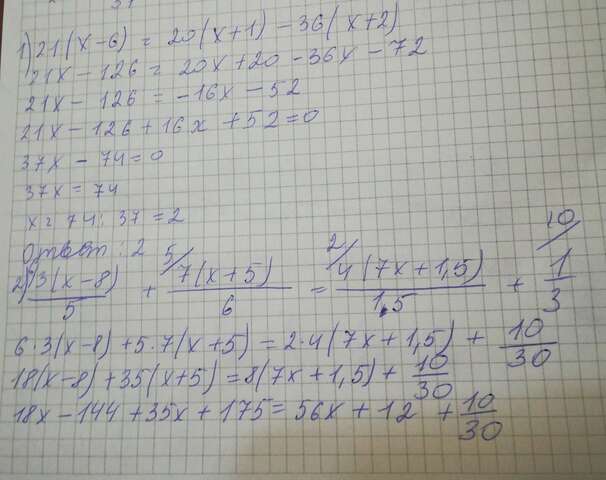 1) 21(x-6) = 20(x+1) - 36(x+2)
21x - 126 = 20x + 20 - 36x - 72
21x - 126 = -16x - 52
21x - 126 + 16x + 52 = 0
37x - 74 = 0
37x = 74
x = 74 : 37 = 2
Ответ : 2
2) 3(x-8)/5 + 5/ 7(x+5)/6 = 2/ 4(7x+1,5)/1,5 + 10/ 1/3
6·3(x-8) + 5·7(x+5) = 2·4(7x+1,5) + 10/30
18(x-8) + 35(x+5) = 8(7x+1,5) + 10/30
18x - 144 + 35x + 175 = 56x + 12 + 10/30